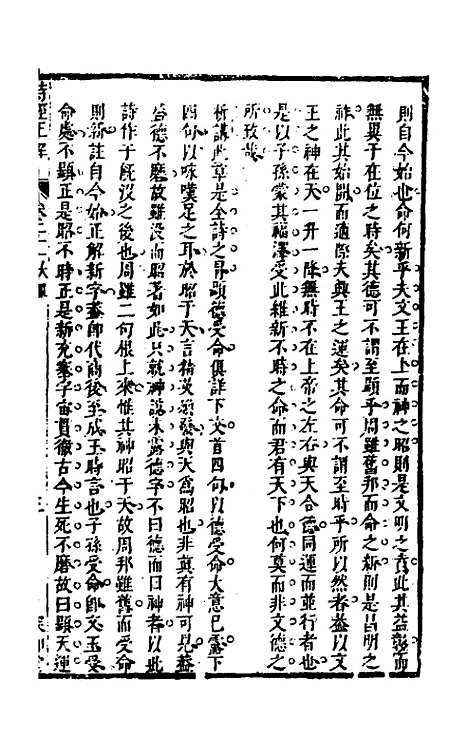 則自今始也命何新乎夫文王在上而神之昭則是文明之責此其益彰而
無異于在位之時矣其德可不謂至顯乎周雖舊邦而命之新則是昌明之
祚此其始開而適際夫興王之運矣其命可不謂至時乎所以然者葢以文
王之神在天一升一降無時不在上帝之左右與天合德同運而並行者也
是以子孫蒙其福澤受此維新不時之命而君有天下也何莫而非文德之
所致哉
析講此章是全詩之
四句以咏嘆足之耳於昭于天言精英煥發與天為昭也非真有神可見葢
盛德不磨故雖沒而昭著如此只就神說未露德字不曰德而曰神者以此
詩作于既沒之後也周雖二句根上來惟其神昭于天故周邦雖舊而受命
則新註自今始正解新字葢卽代商後至成王時言也子孫受命卽文王受
命處不顯正是昭不時正是新充塞宇宙貫徹古今生死不磨故曰顯天運
詩經正解 卷二十一大雅